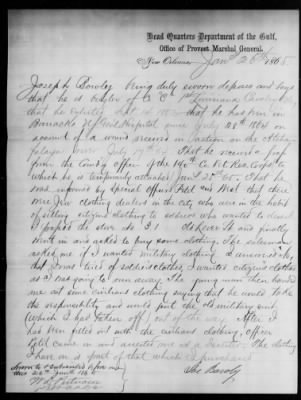 Head Quarters Department of the Gulf,
Office of Provost Marshal General.
New Orleans, Jany 26th 1865
Joseph Bowly being duly sworn deposes and says
that he is of Co. C 1st Louisiana Cavalry
that he enlisted that he has been in
Barracks U.S. Genl Hospital since July 28th 1864 on
account of a wound received in action on the
river July That he received a pass
from the Comdg officer of the Co. Vet. Res. Corps to
which he is temporarily attached Jany 25th 65. That he
was informed by Special officers Field and West that there
were Jew clothing dealers in the city who were in the habit
of selling citizens clothing to soldiers who wanted to desert
I the store No. 31 Old Levee St and finally
went in and asked to buy some clothing. The salesman
asked me if I wanted military clothing I answered no,
that I was tired of soldiers clothes, I wanted citizens clothes
as I was going to run away. The young man then showed
me out some civilians clothing saying that he would take
the responsibility and would put the old military suit
(which I had taken off) out of the way. After I
had been fitted out with the civilians clothing, officer
Field came in and arrested me as a deserter. The clothing
I have on is part of that which I purchased
Sworn to & subscribed before me
this 26th Jany 1865
Joe Bowly